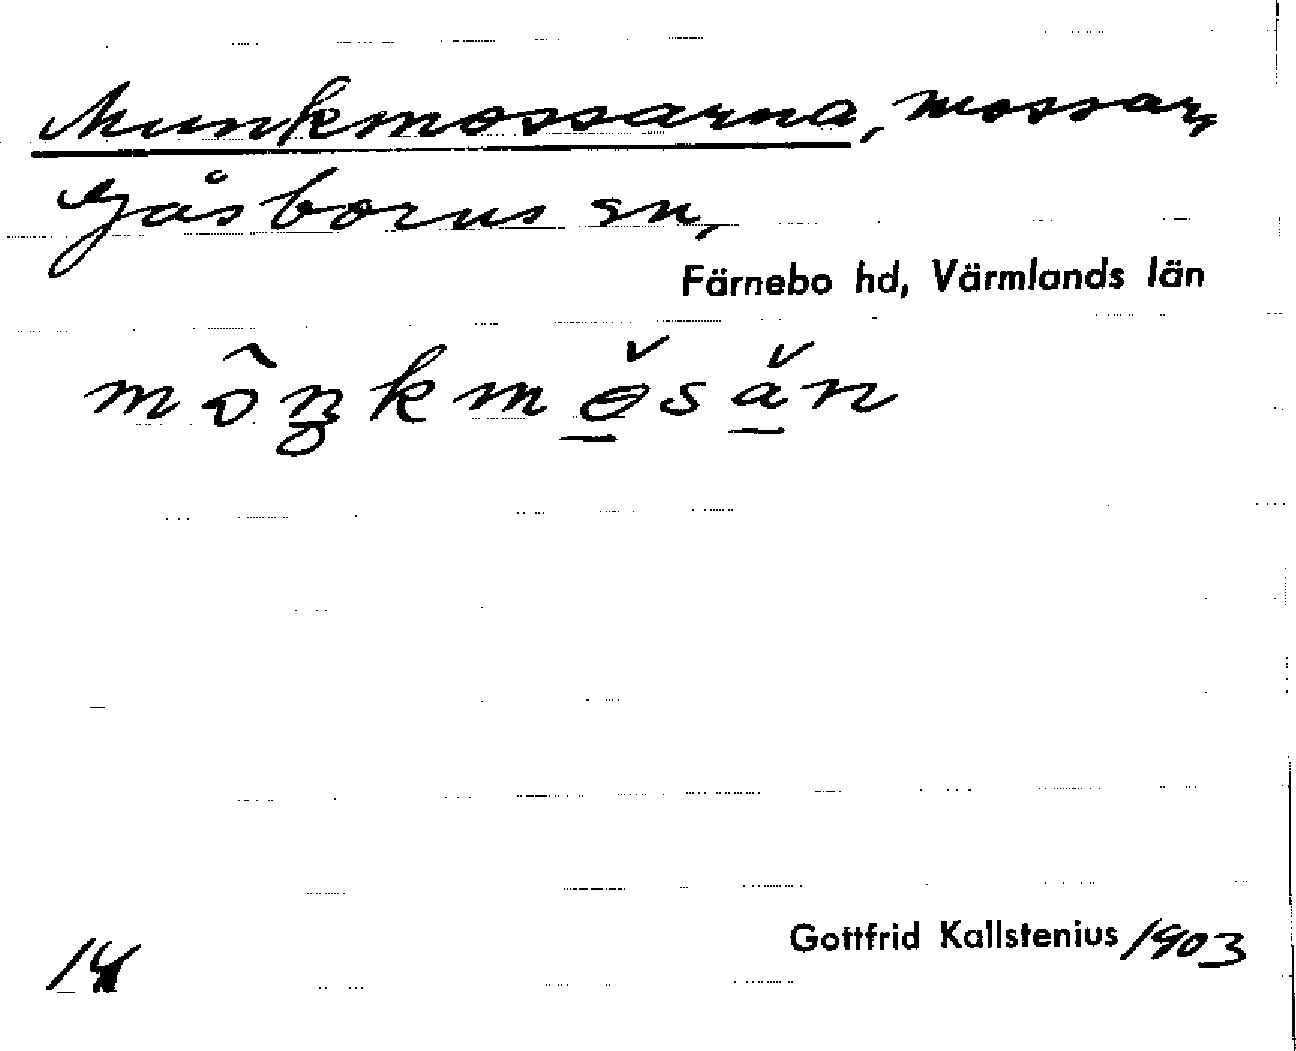 Munkmossarna, mossar,
Gåsborns sn,
Färnebo hd, Värmlands län
14
Gottfrid Kallstenius 1903